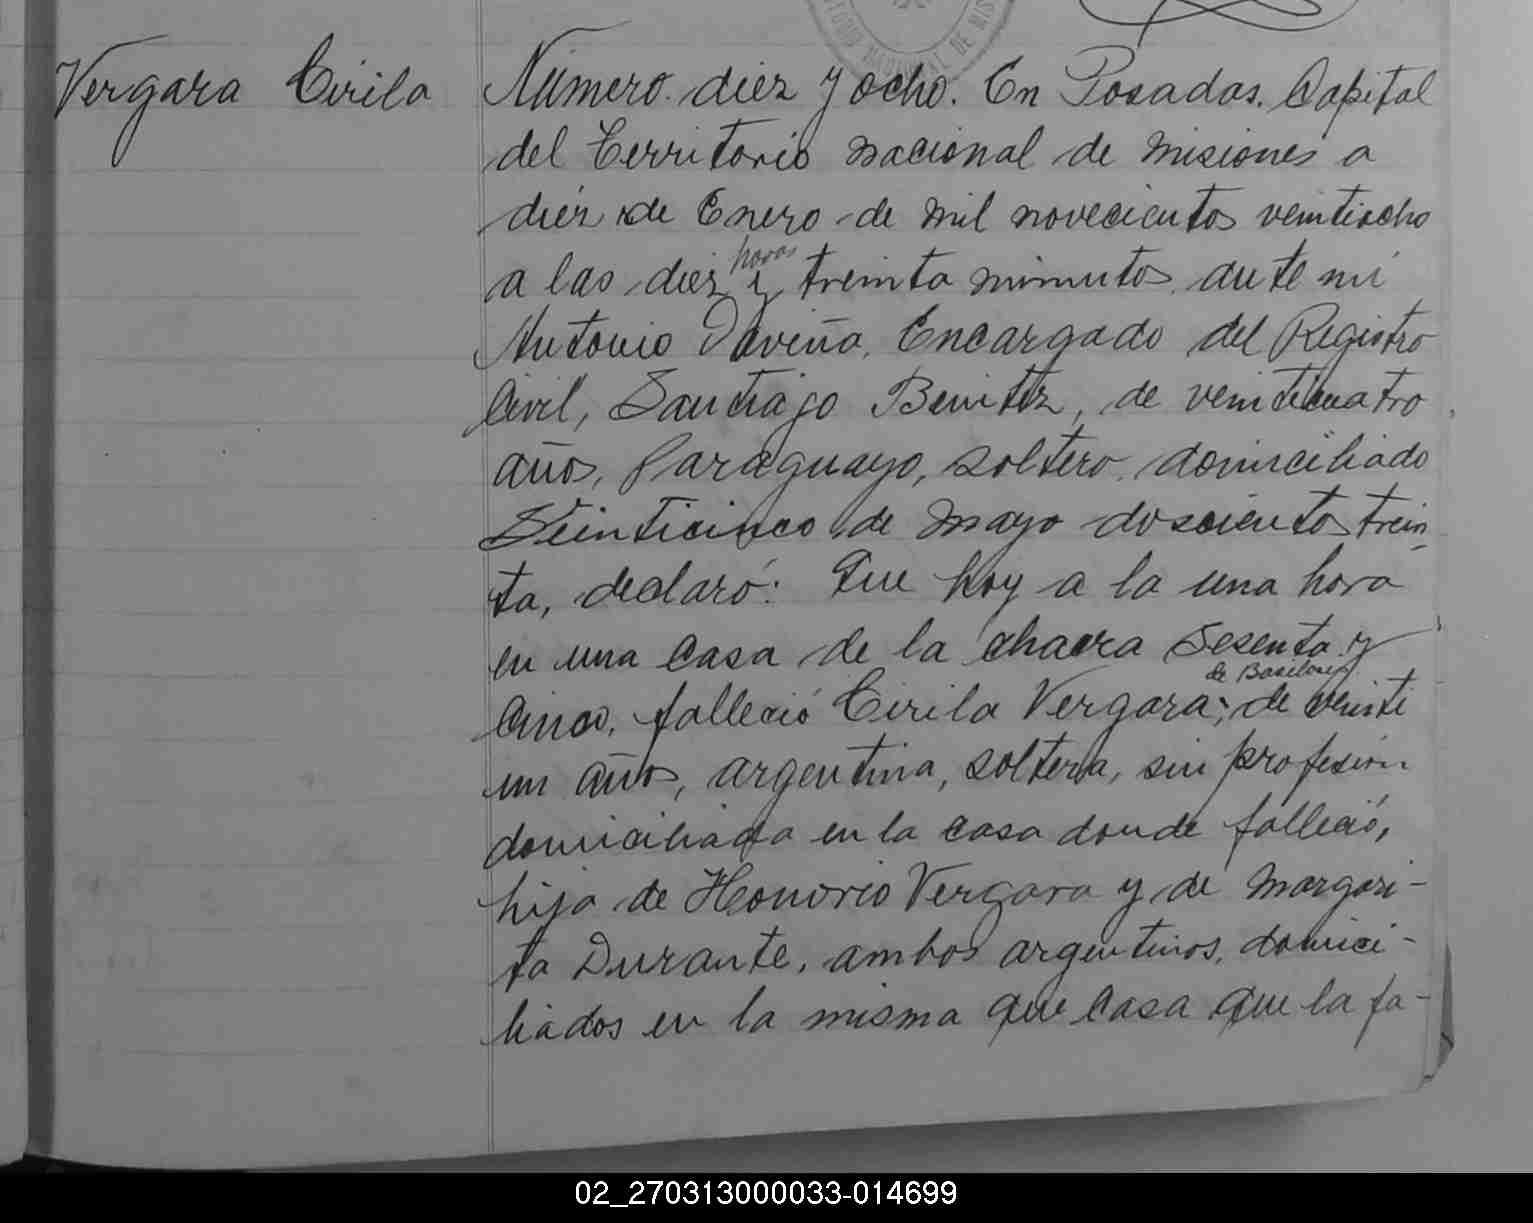 Vergara Cirila
Número diez y ocho. En Posadas, Capital
del Territorio nacional de Misiones a
diez de Enero de mil novecientos veintiocho
horas
a las diez y treinta minutos, ante mí
Antonio Encargado del Registro
Civil, Santiago Benitez, de veinticuatro
años, Paraguayo, soltero, domiciliado
Veinticinco de Mayo doscientos trein
ta, declaró: Que hoy a la una hora
en una casa de la chacra sesenta y
de
cinco, falleció Cirila Vergara; de veinti
un años, argentina, soltera, sin profesión
domiciliada en la casa donde falleció,
hija de Honorio Vergara y de Margari-
ta Durante, ambos argentinos, domici-
liados en la misma que casa que la fa-
02_270313000033-014699